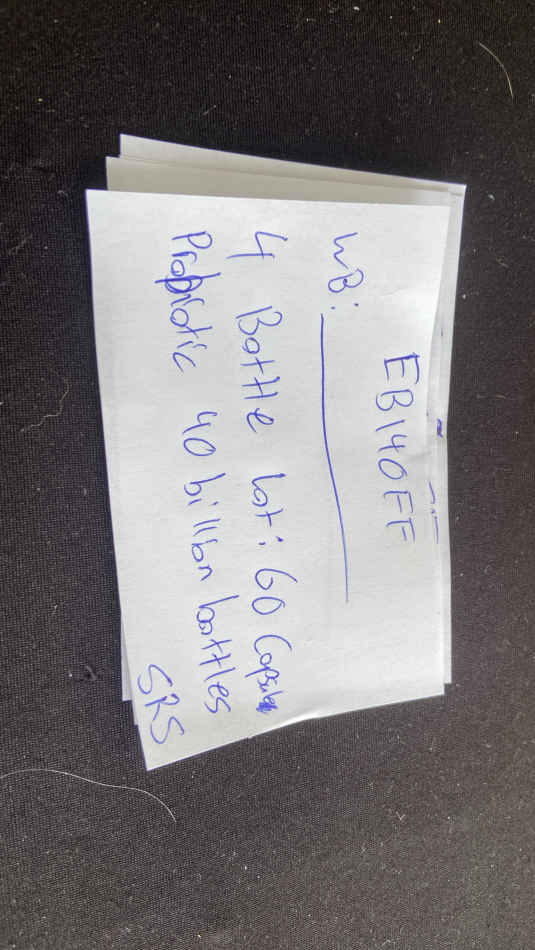 EB140EF
WB:
4 Bottle Lot: 60 Capsules
Probiotic 40 billion bottles
SRS